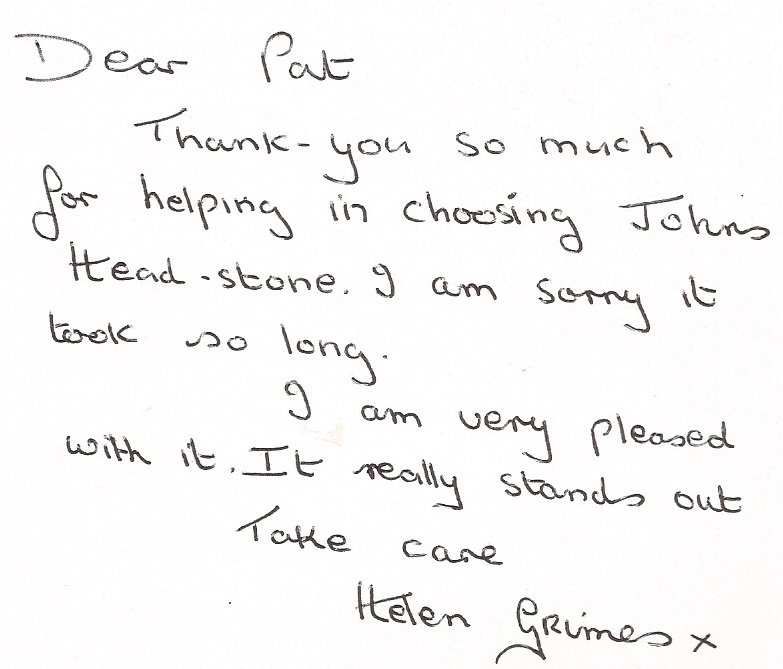 Dear Pat
Thank-you so much
for helping in choosing Johns
Head-stone. I am sorry it
took so long.
I am very pleased
with it. It really stands out
Take care
Helen Grimes x